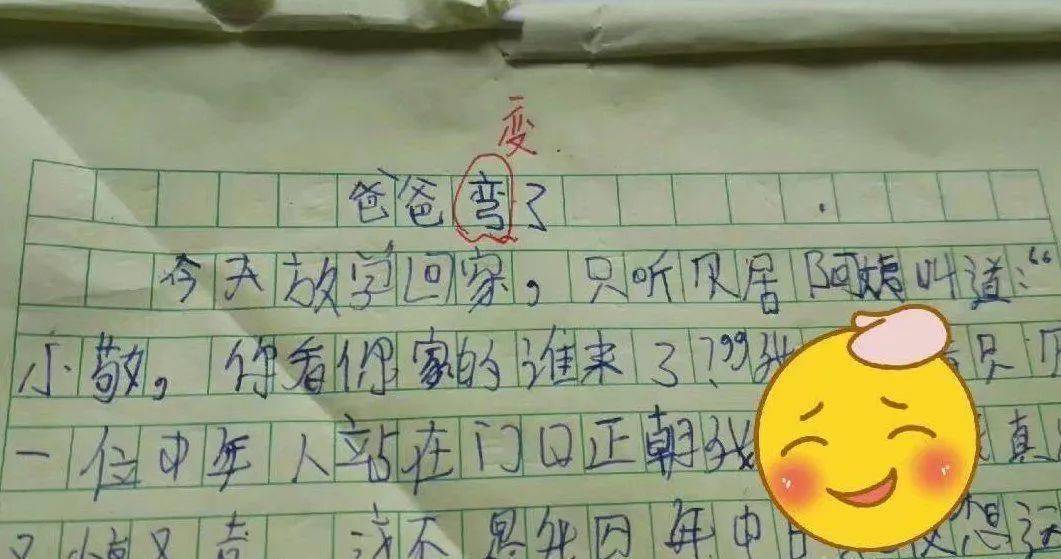 变
爸爸弯了
今天放学回家。只听见居阿姨叫道:“
小敬。你看你家的谁来了?”我 只见
一位中年人站在门口正朝我 真
又 又 这不是 年中 想